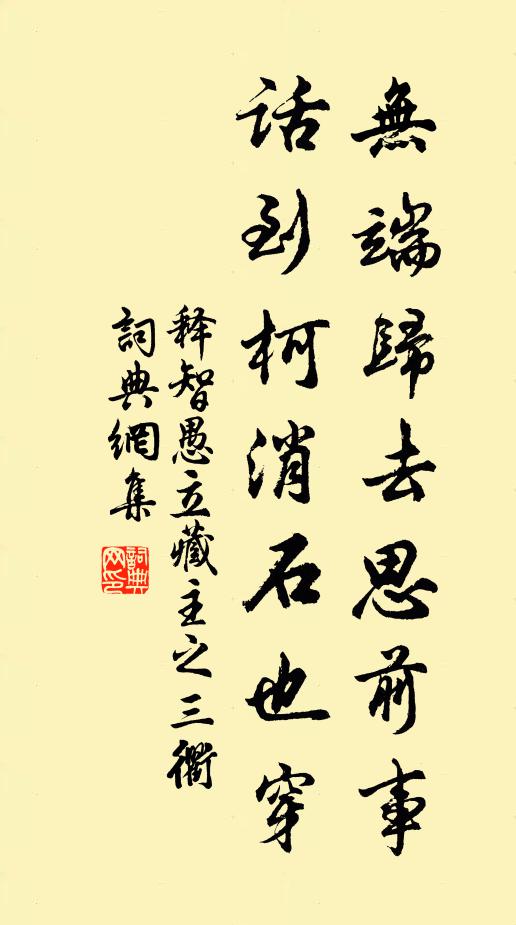 無端歸去思前事
话到柯消石也穿
释智愚立藏主之三衢
詞典網集
詞典网印